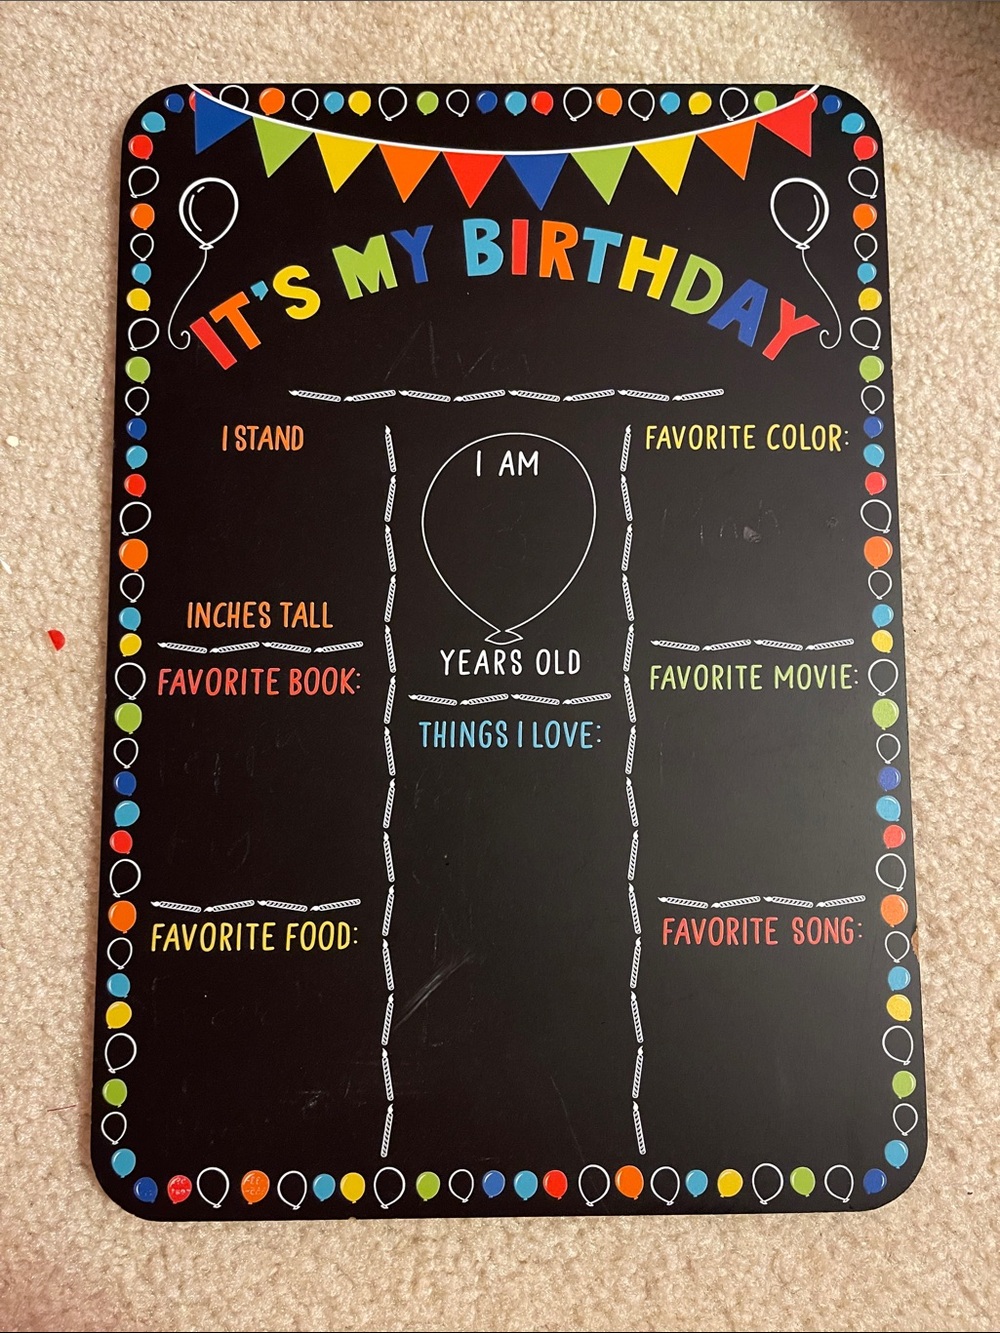 IT'S MY BIRTHDAY
I STAND
INCHES TALL
FAVORITE BOOK:
FAVORITE FOOD:
I AM
YEARS OLD
THINGS I LOVE:
FAVORITE COLOR:
FAVORITE MOVIE:
FAVORITE SONG: